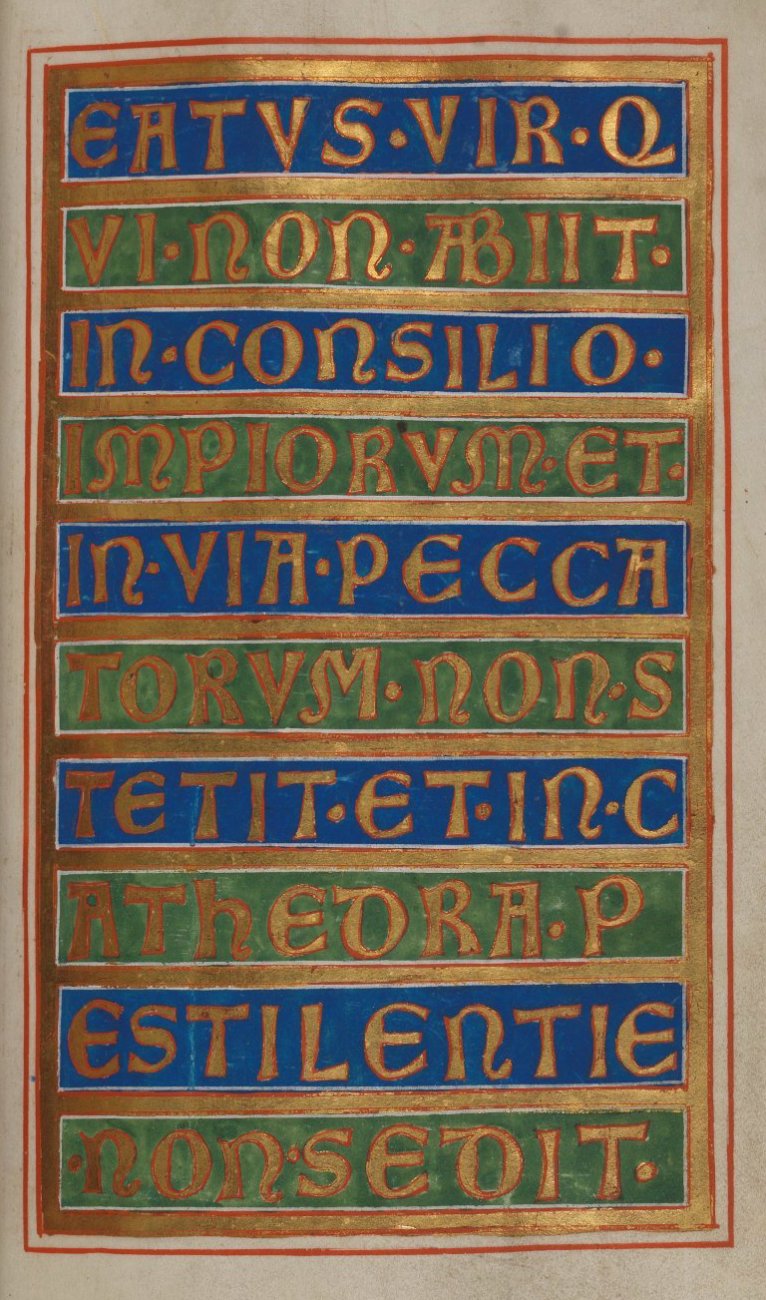 EATVS·VIR·Q
VI·NON·ABIIT·
IN·CONSILIO·
IMPIORVM·ET·
IN·VIA·PECCA
TORVM·NON·S
TETIT·ET·IN·C
AThEDRA·P
ESTILENTIE
·NON·SEDIT·